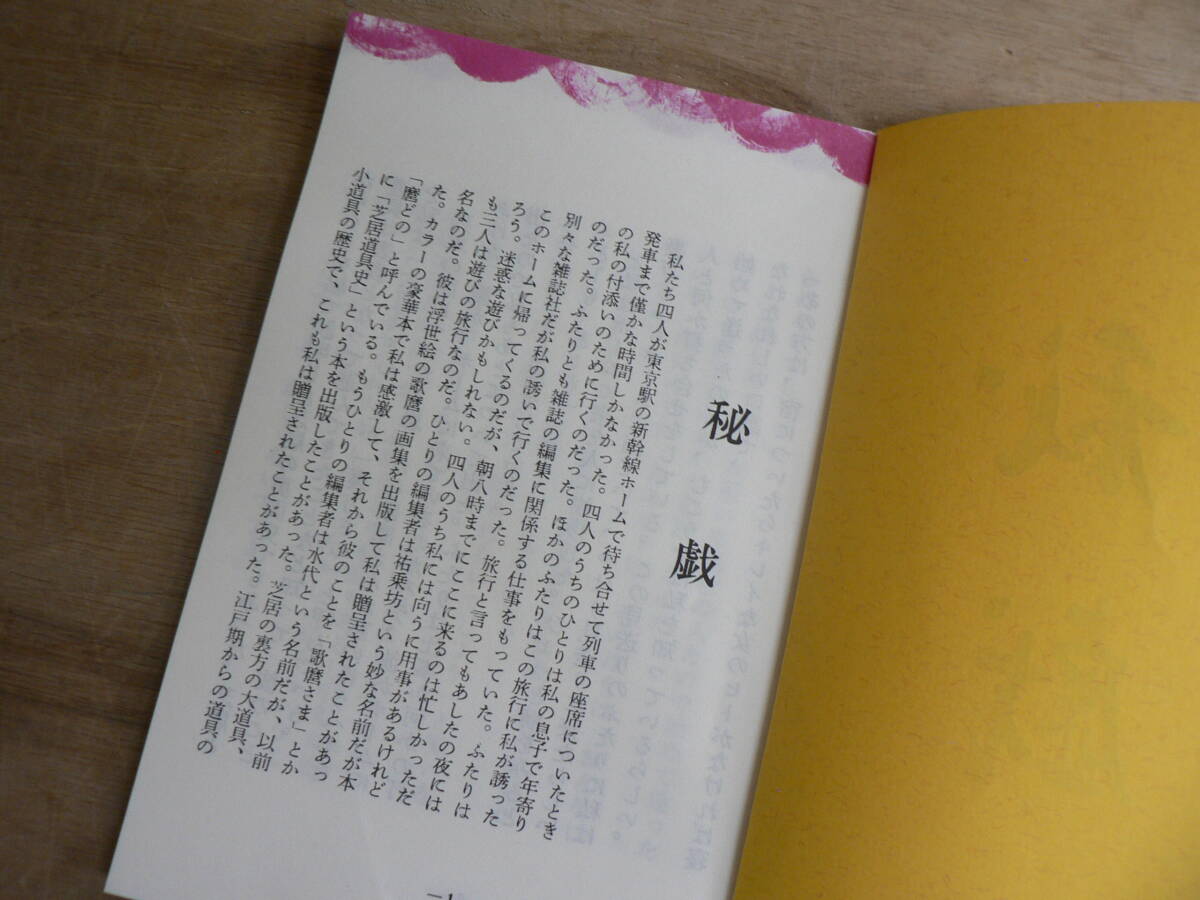 秘戯
私たち四人が東京駅の新幹線ホームで待ち合せて列車の座席についたとき
発車まで僅かな時間しかなかった。四人のうちのひとりは私の息子で年寄り
の私の付添いのために行くのだった。ほかのふたりはこの旅行に私が誘った
のだった。ふたりとも雑誌の編集に関係する仕事をもっていた。ふたりは
別々な雑誌社だが私の誘いで行くのだった。旅行と言ってもあしたの夜には
このホームに帰ってくるのだが、朝八時までにここに来るのは忙しかっただ
ろう。迷惑な遊びかもしれない。四人のうち私には向うに用事があるけれど
も三人は遊びの旅行なのだ。ひとりの編集者は祐乗坊という妙な名前だが本
名なのだ。彼は浮世絵の歌麿の画集を出版して私は贈呈されたことがあっ
た。カラーの豪華本で私は感激して、それから彼のことを「歌麿さま」とか
「麿どの」と呼んでいる。もうひとりの編集者は水代という名前だが、以前
に「芝居道具史」という本を出版したことがあった。芝居の裏方の大道具、
小道具の歴史で、これも私は贈呈されたことがあった。江戸期からの道具の